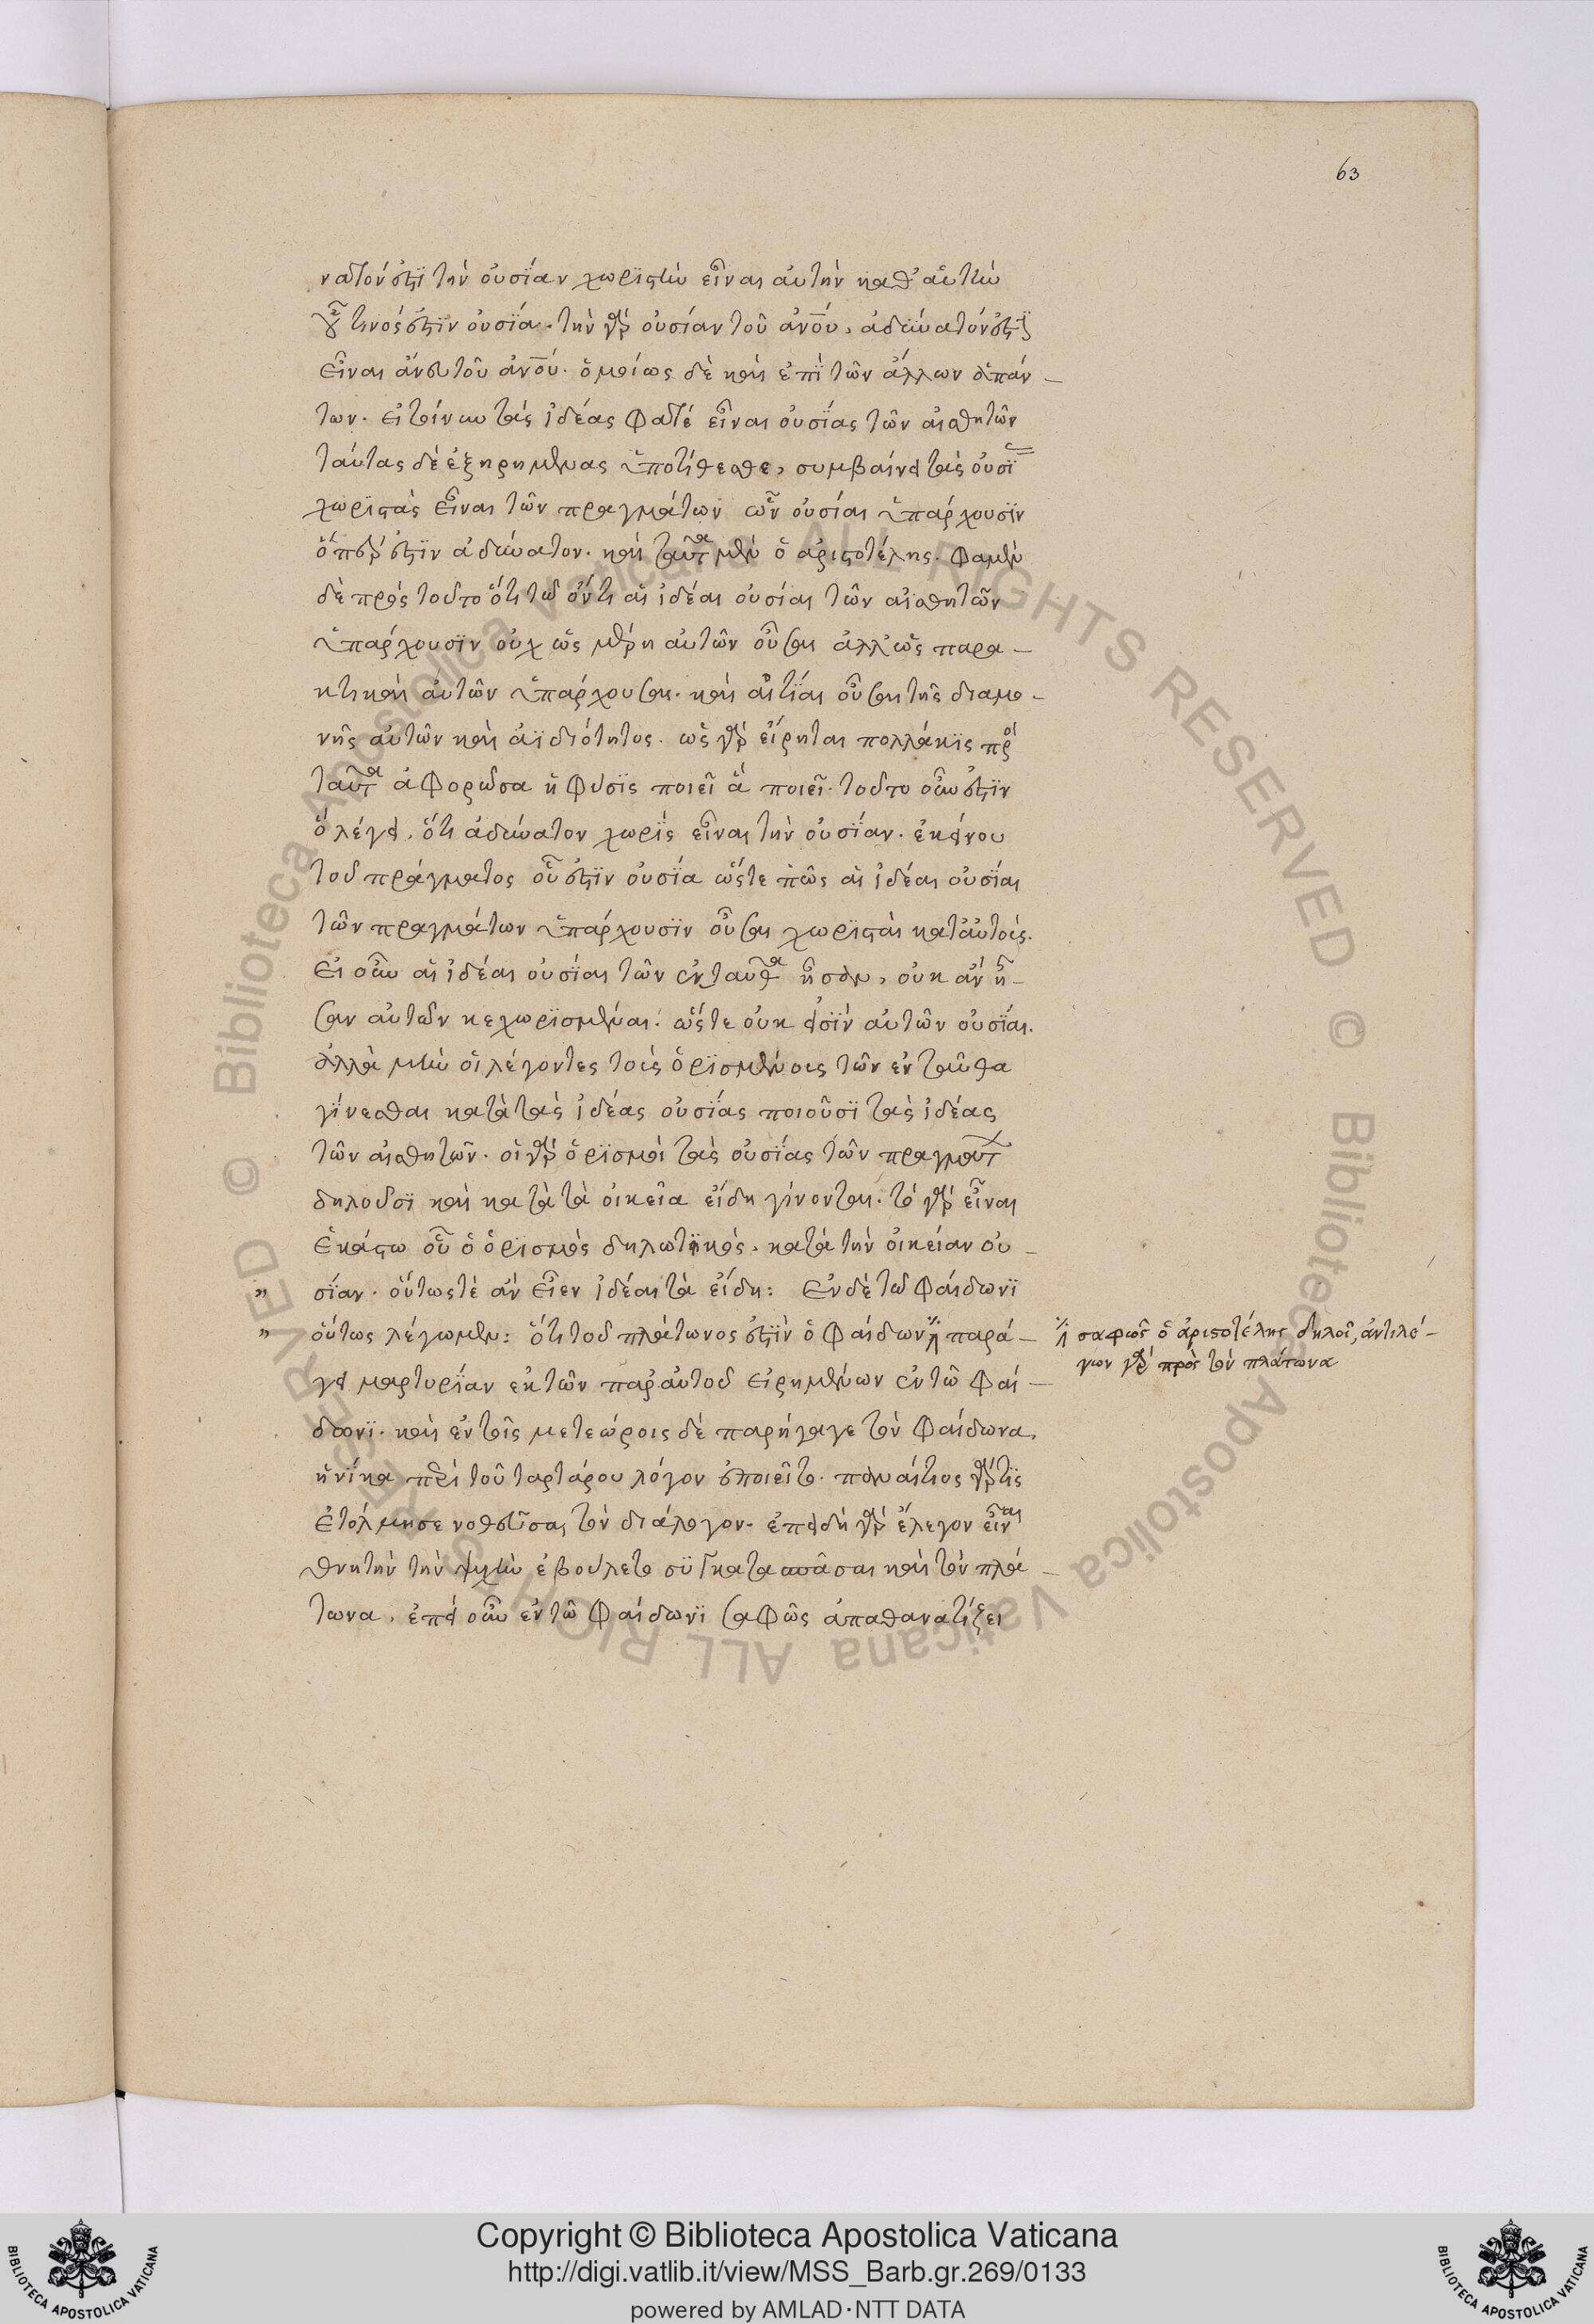 63
νατόν ἐστι τὴν οὐσίαν χωριστὴν εἶναι αὐτὴν καθ' αὑτὴν
οὗ τινός ἐστιν οὐσία. τὴν γὰρ οὐσίαν τοῦ ἀνου, ἀδύνατόν ἐστιν
εἶναι ἄνευ τοῦ ἀνου. ὁμοίως δὲ καὶ ἐπὶ τῶν ἄλλων ἁπάν-
των. εἰ τοίνυν τὰς ἰδέας φατὲ εἶναι οὐσίας τῶν αἰσθητῶν
ταύτας δὲ ἐξῃρημένας ὑποτίθεσθε, συμβαίνει τὰς οὐσίας
χωριστὰς εἶναι τῶν πραγμάτων ὧν οὐσίαι ὑπάρχουσιν
ὅπερ ἐστὶν ἀδύνατον. καὶ ταῦτα μὲν ὁ ἀριστοτέλης. φαμὲν
δὲ πρὸς τοῦτο ὅτι τῷ ὄντι αἱ ἰδέαι οὐσίαι τῶν αἰσθητῶν
ὑπάρχουσιν οὐχ ὡς μέρη αὐτῶν οὖσαι ἀλλ' ὡς παρα-
κτικαὶ αὐτῶν ὑπάρχουσαι. καὶ αἰτίαι οὖσαι τῆς διαμο-
νῆς αὐτῶν καὶ ἀϊδιότητος. ὡς γὰρ εἴρηται πολλάκις πρὸς
ταῦτα ἀφορῶσα ἡ φύσις ποιεῖ ἃ ποιεῖ. τοῦτο οὖν ἐστιν
ὃ λέγει, ὅτι ἀδύνατον χωρὶς εἶναι τὴν οὐσίαν. ἐκείνου
τοῦ πράγματος οὗ ἐστιν οὐσία ὥστε πῶς αἱ ἰδέαι οὐσίαι
τῶν πραγμάτων ὑπάρχουσιν οὖσαι χωρισταὶ κατ' αὐτούς.
εἰ οὖν αἱ ἰδέαι οὐσίαι τῶν ἐνταῦθα ἦσαν, οὐκ ἂν ἦ-
σαν αὐτῶν κεχωρισμέναι. ὥστε οὐκ εἰσὶν αὐτῶν οὐσίαι.
ἀλλὰ μὴν οἱ λέγοντες τοὺς ὁρισμοὺς τῶν ἐνταῦθα
γίνεσθαι κατὰ τὰς ἰδέας οὐσίας ποιοῦσι τὰς ἰδέας
τῶν αἰσθητῶν. οἱ γὰρ ὁρισμοὶ τὰς οὐσίας τῶν πραγμάτων
δηλοῦσι καὶ κατὰ τὰ οἰκεῖα εἴδη γίνονται. τὸ γὰρ εἶναι
ἑκάστω οὗ ὁ ὁρισμὸς δηλωτικὸς, κατὰ τὴν οἰκείαν οὐ-
" σίαν. οὕτως τὲ ἂν εἶεν ἰδέαι τὰ εἴδη: Ἐν δὲ τῷ φαίδωνι
" οὕτως λέγωμεν: ὅτι τοῦ πλάτωνος ἐστὶν ὁ φαίδων παρά-
γει μαρτυρίαν ἐκ τῶν παρ' αὐτοῦ εἰρημένων ἐν τῷ φαί-
δωνι. καὶ ἐν τοῖς μετεώροις δὲ παρήγαγε τὸν φαίδωνα,
ἡνίκα περὶ τοῦ ταρτάρου λόγον ἐποιεῖτο. παναίτιος γάρ τις
ἐτόλμησε νοθεῦσαι τὸν διάλογον. ἐπειδὴ γὰρ ἔλεγον εἶναι
θνητὴν τὴν ψυχὴν ἐβούλετο συγκατασπάσαι καὶ τὸν πλά-
τωνα, ἐπεὶ οὖν ἐν τῷ φαίδωνι σαφῶς ἀπαθανατίζει
σαφῶς ὁ ἀριστοτέλης δηλοῖ, ἀντιλέ-
γων γὰρ πρὸς τὸν πλάτωνα
Copyright © Biblioteca Apostolica Vaticana
http://digi.vatlib.it/view/MSS_Barb.gr.269/0133
powered by AMLAD·NTT DATA
BIBLIOTECA APOSTOLICA VATICANA
BIBLIOTECA APOSTOLICA VATICANA
© Biblioteca Apostolica Vaticana ALL RIGHTS RESERVED © Biblioteca Apostolica Vaticana ALL RIGHTS RESERVED